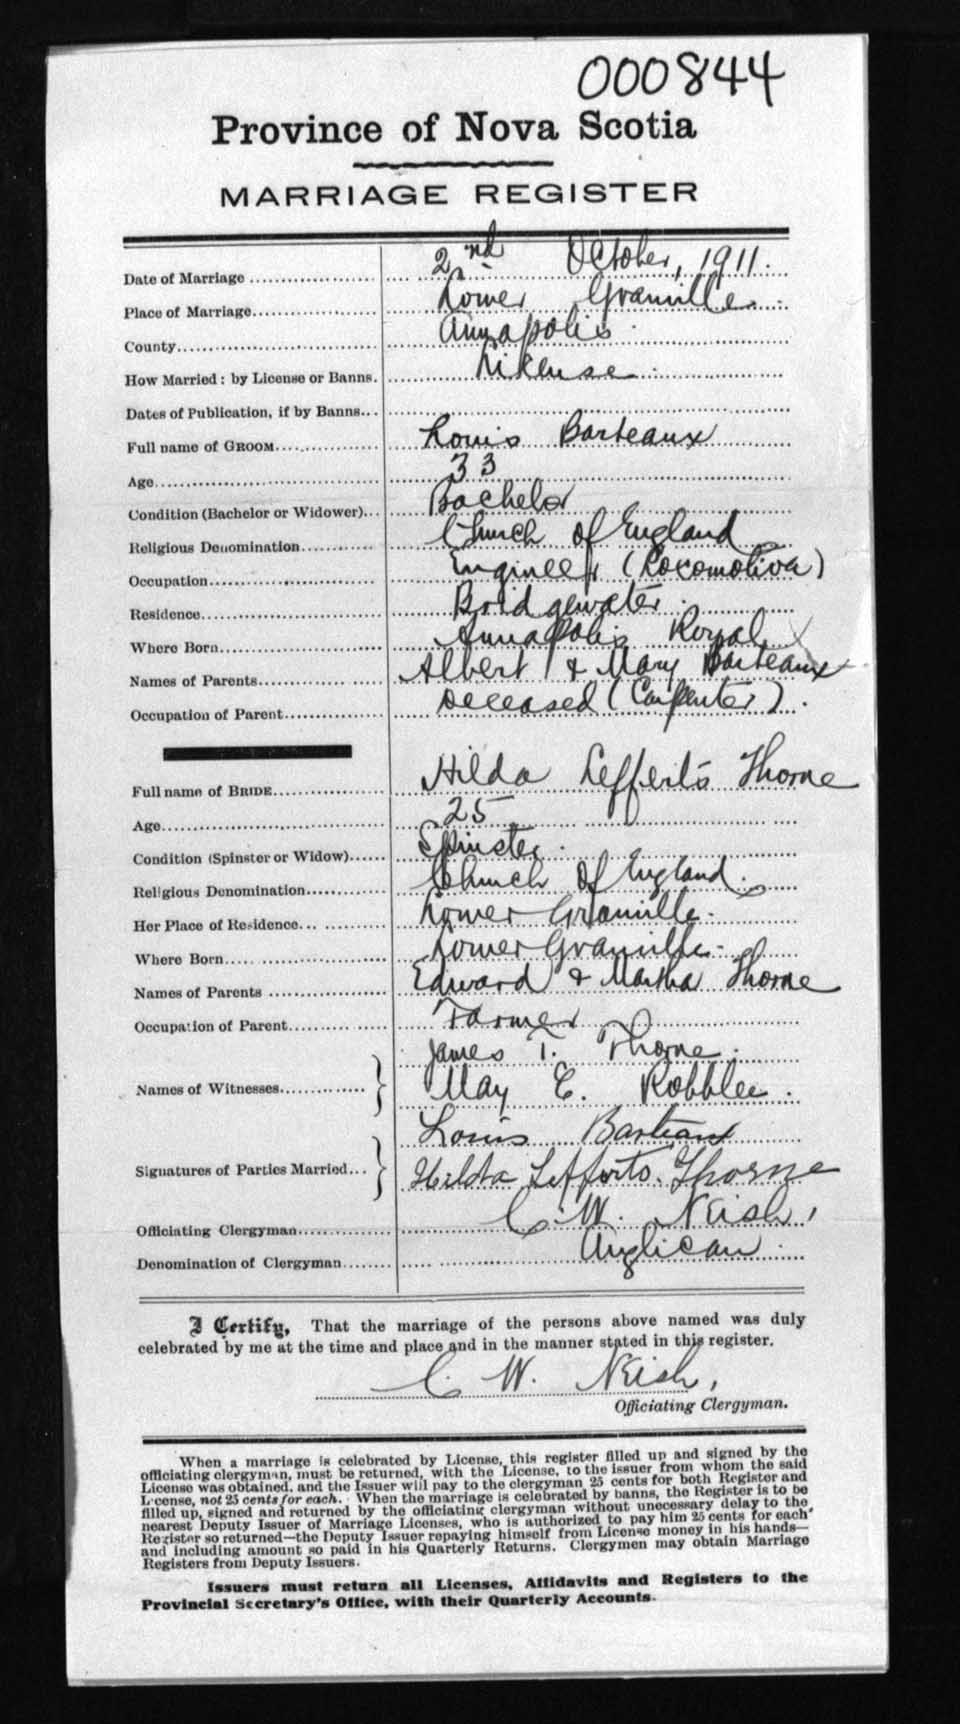 000844
Province of Nova Scotia
MARRIAGE REGISTER
Date of Marriage 2nd October, 1911.
Place of Marriage Lower Granville.
County Annapolis.
How Married: by License or Banns. License.
Dates of Publication, if by Banns
Full name of GROOM Louis Barteaux
Age 33
Condition (Bachelor or Widower) Bachelor
Religious Denomination Church of England
Occupation Engineer (Locomotive)
Residence Bridgewater.
Where Born Annapolis Royal
Names of Parents Albert & Mary Barteaux
Occupation of Parent Deceased (Carpenter).
Full name of BRIDE Hilda Lefferts Thorne
Age 25
Condition (Spinster or Widow) Spinster.
Religious Denomination Church of England.
Her Place of Residence Lower Granville.
Where Born Lower Granville.
Names of Parents Edward & Martha Thorne
Occupation of Parent Farmer
James T. Thorne.
Names of Witnesses
May E. Robblee.
Louis Barteaux
Signatures of Parties Married
Hilda Lefferts Thorne
Officiating Clergyman C. W. Neish,
Denomination of Clergyman Anglican.
I Certify, That the marriage of the persons above named was duly
celebrated by me at the time and place and in the manner stated in this register.
C. W. Neish,
Officiating Clergyman.
When a marriage is celebrated by License, this register filled up and signed by the
officiating clergyman, must be returned, with the License, to the issuer from whom the said
License was obtained, and the Issuer will pay to the clergyman 25 cents for both Register and
License, not 25 cents for each. When the marriage is celebrated by banns, the Register is to be
filled up, signed and returned by the officiating clergyman without unecessary delay to the
nearest Deputy Issuer of Marriage Licenses, who is authorized to pay him 25 cents for each
Register so returned—the Deputy Issuer repaying himself from License money in his hands—
and including amount so paid in his Quarterly Returns. Clergymen may obtain Marriage
Registers from Deputy Issuers.
Issuers must return all Licenses, Affidavits and Registers to the
Provincial Secretary's Office, with their Quarterly Accounts.